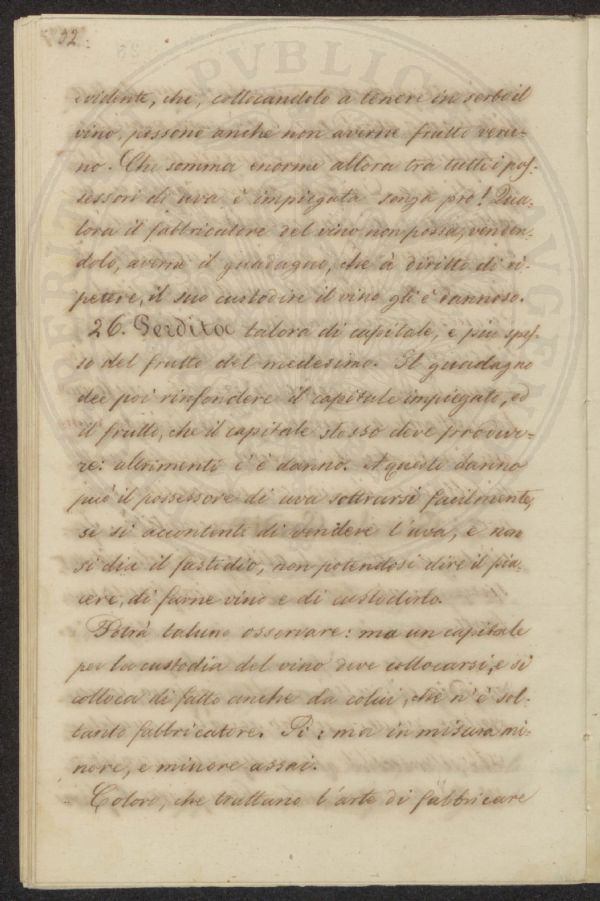 32.
evidente, che, collocandolo a tenere in serbo il
vino, possono anche non averne frutto veru-
no. Che somma enorme allora tra tutti i pos-
sessori di uva è impiegata senza pro! Qua-
lora il fabbricatore del vino non possa, venden-
dolo, averne il guadagno, che à diritto di ri-
petere, il suo custodire il vino gli è dannoso.
26. Perdita talora di capitale, e più spes-
so del frutto del medesimo. Il guadagno
dee poi rinfondere il capitale impiegato, ed
il frutto, che il capitale stesso deve produr-
re: altrimenti c'è danno. A questo danno
può il possessore di uva sottrarsi facilmente,
se si accontenti di vendere l'uva, e non
si dia il fastidio, non potendosi dire il pia-
cere, di farne vino e di custodirlo.
Potrà taluno osservare: ma un capitale
per la custodia del vino deve collocarsi, e si
colloca di fatto anche da colui, che n'è sol-
tanto fabbricatore. Sì; ma in misura mi-
nore, e minore assai.
Coloro, che trattano l'arte di fabbricare
PVBLICA